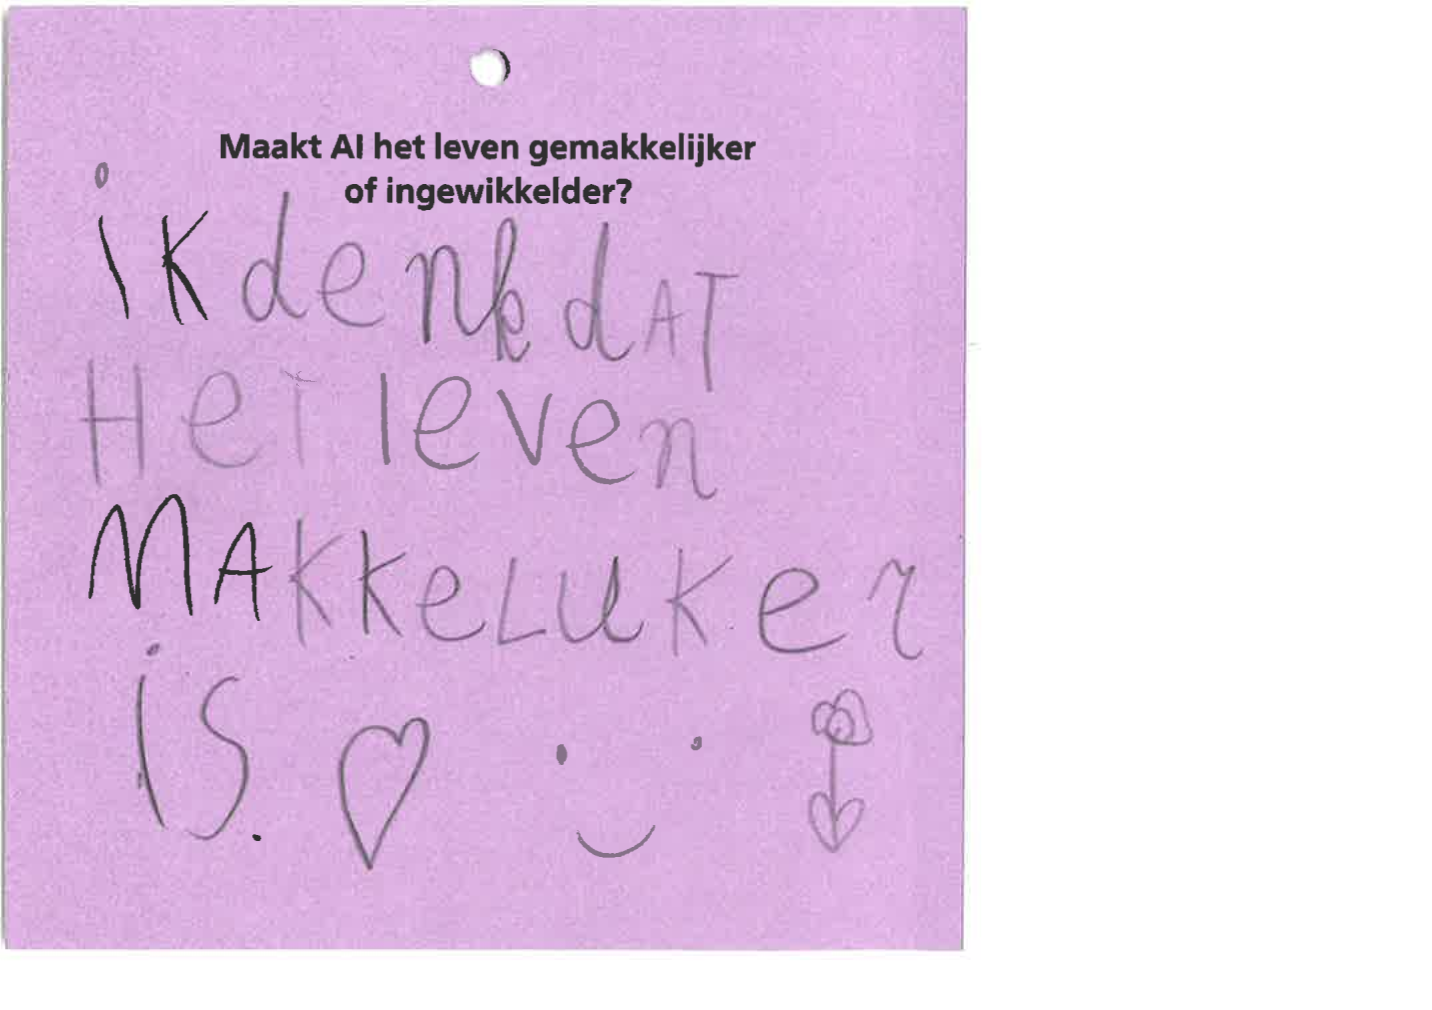 Maakt AI het leven gemakkelijker
of ingewikkelder?
iK denk dAT
HeT leven
MAKkeLuKer
is.